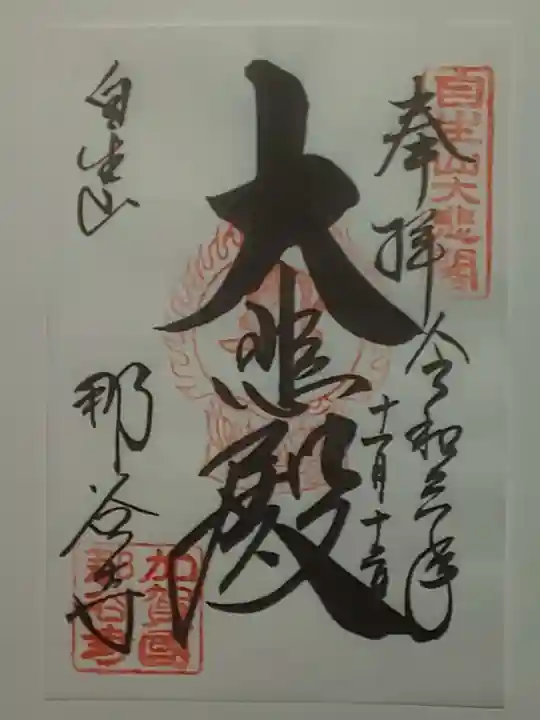 自生山大悲閣
奉拝
令和三年
十一月十三日
大悲殿
自生山
那谷寺
加賀國
那谷寺